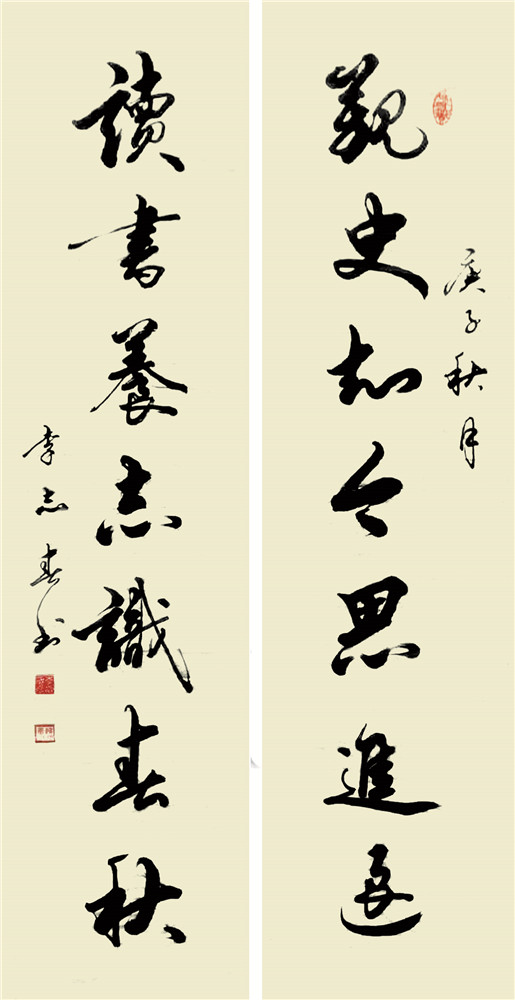 庚子秋月
觀史知今思進退
讀書養志識春秋
李志春书